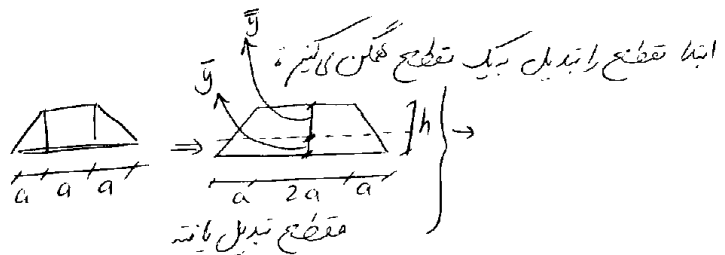 ابتدا مقطع را تبدیل به یک مقطع همگن می‌کنیم :
ȳ ȳ̄
⇒ h →
a a a a 2a a
مقطع تبدیل یافته